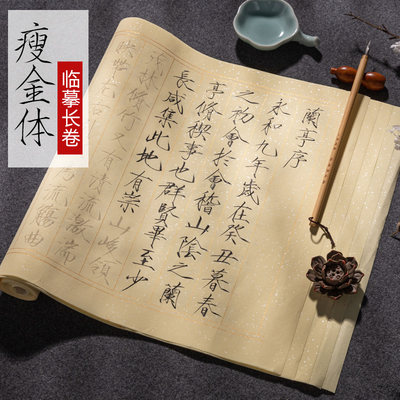 瘦金体
临摹长卷
蘭亭序
永和九年歲在癸丑暮春
之初會於會稽山陰之蘭
亭脩禊事也群賢畢至少
長咸集此地有崇山峻領
茂林脩竹又有清流激湍
映帶左右
流觴曲